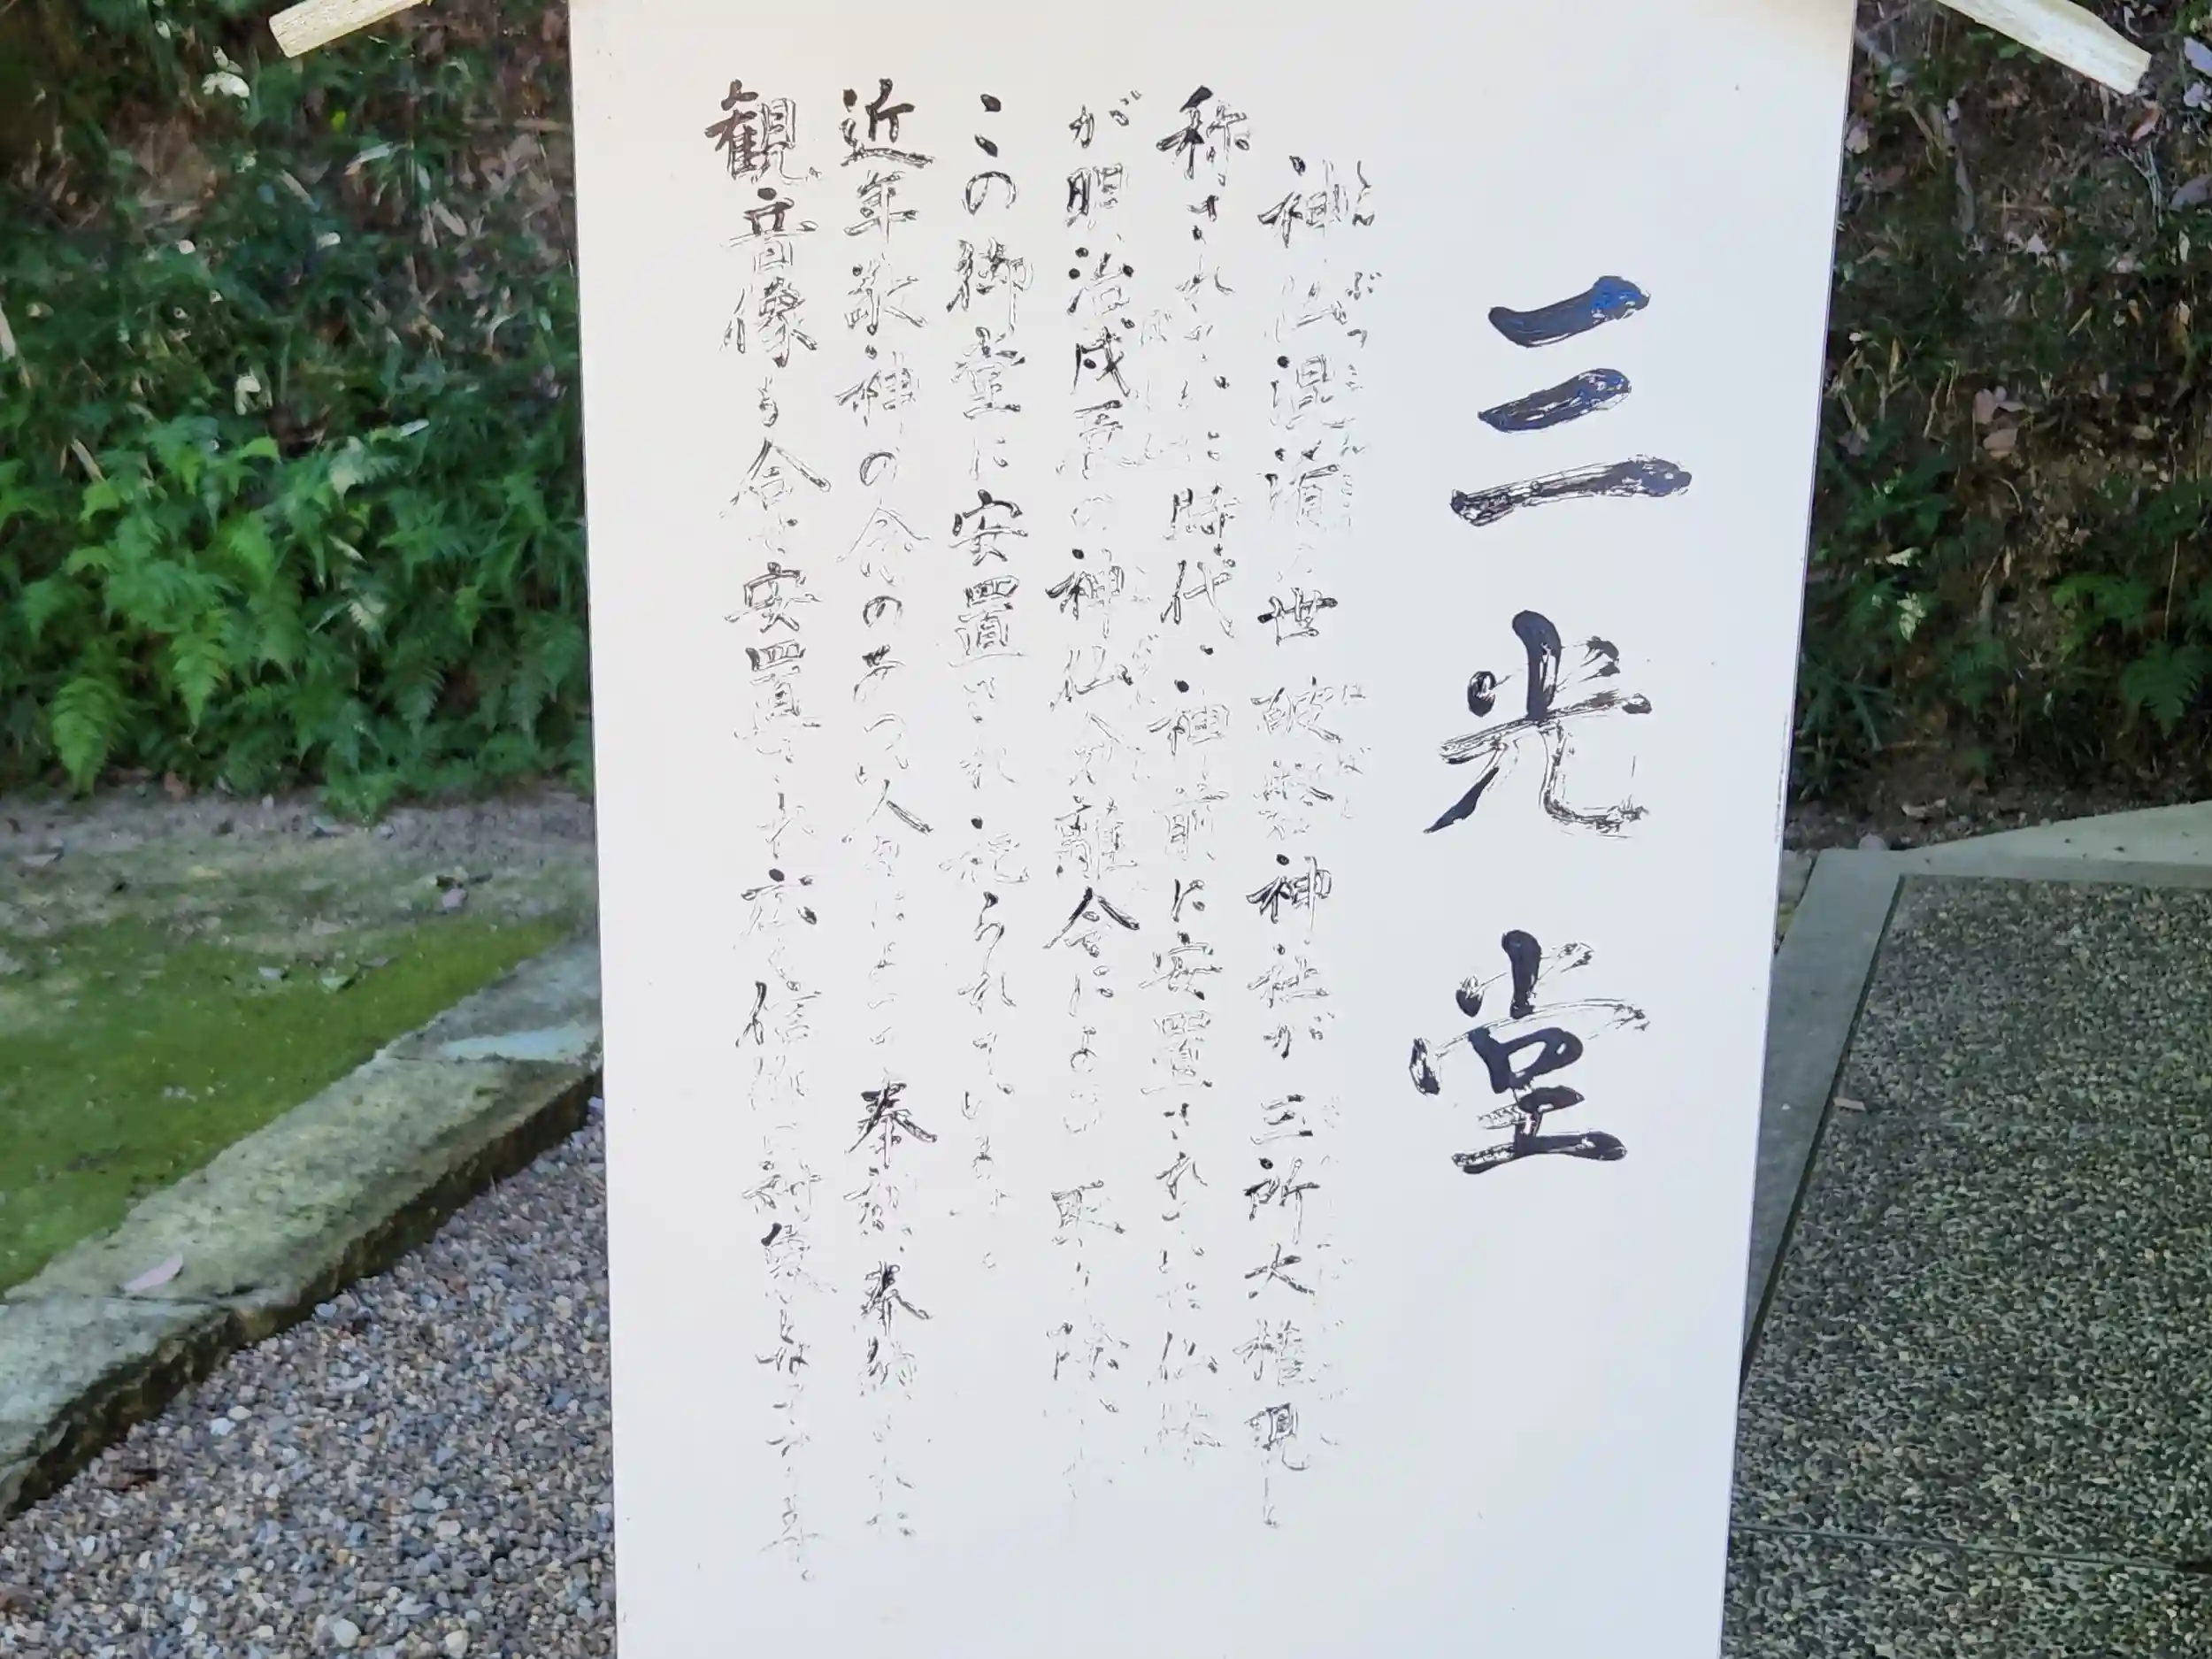 三光堂
神仏混淆の世 破磐神社が三所大権現と
称されていた時代、神前に安置されていた仏様
が明治戊辰の神仏分離令により取り除かれ
この御堂に安置され、祀られています。
近年敬神の念のあつい人々によって奉献、奉納された
観音像も合せ安置され広く信仰の対象となっています。